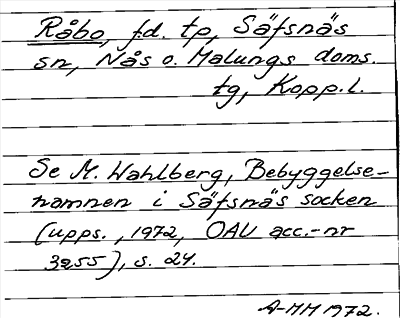 Råbo, fd. tp, Säfsnäs
sn, Nås o. Malungs doms.
tg, Kopp. l.
Se M. Wahlberg, Bebyggelse-
namnen i Säfsnäs socken
(upps., 1972, OAU acc.-nr
3255), s. 24.
A-MH 1972.